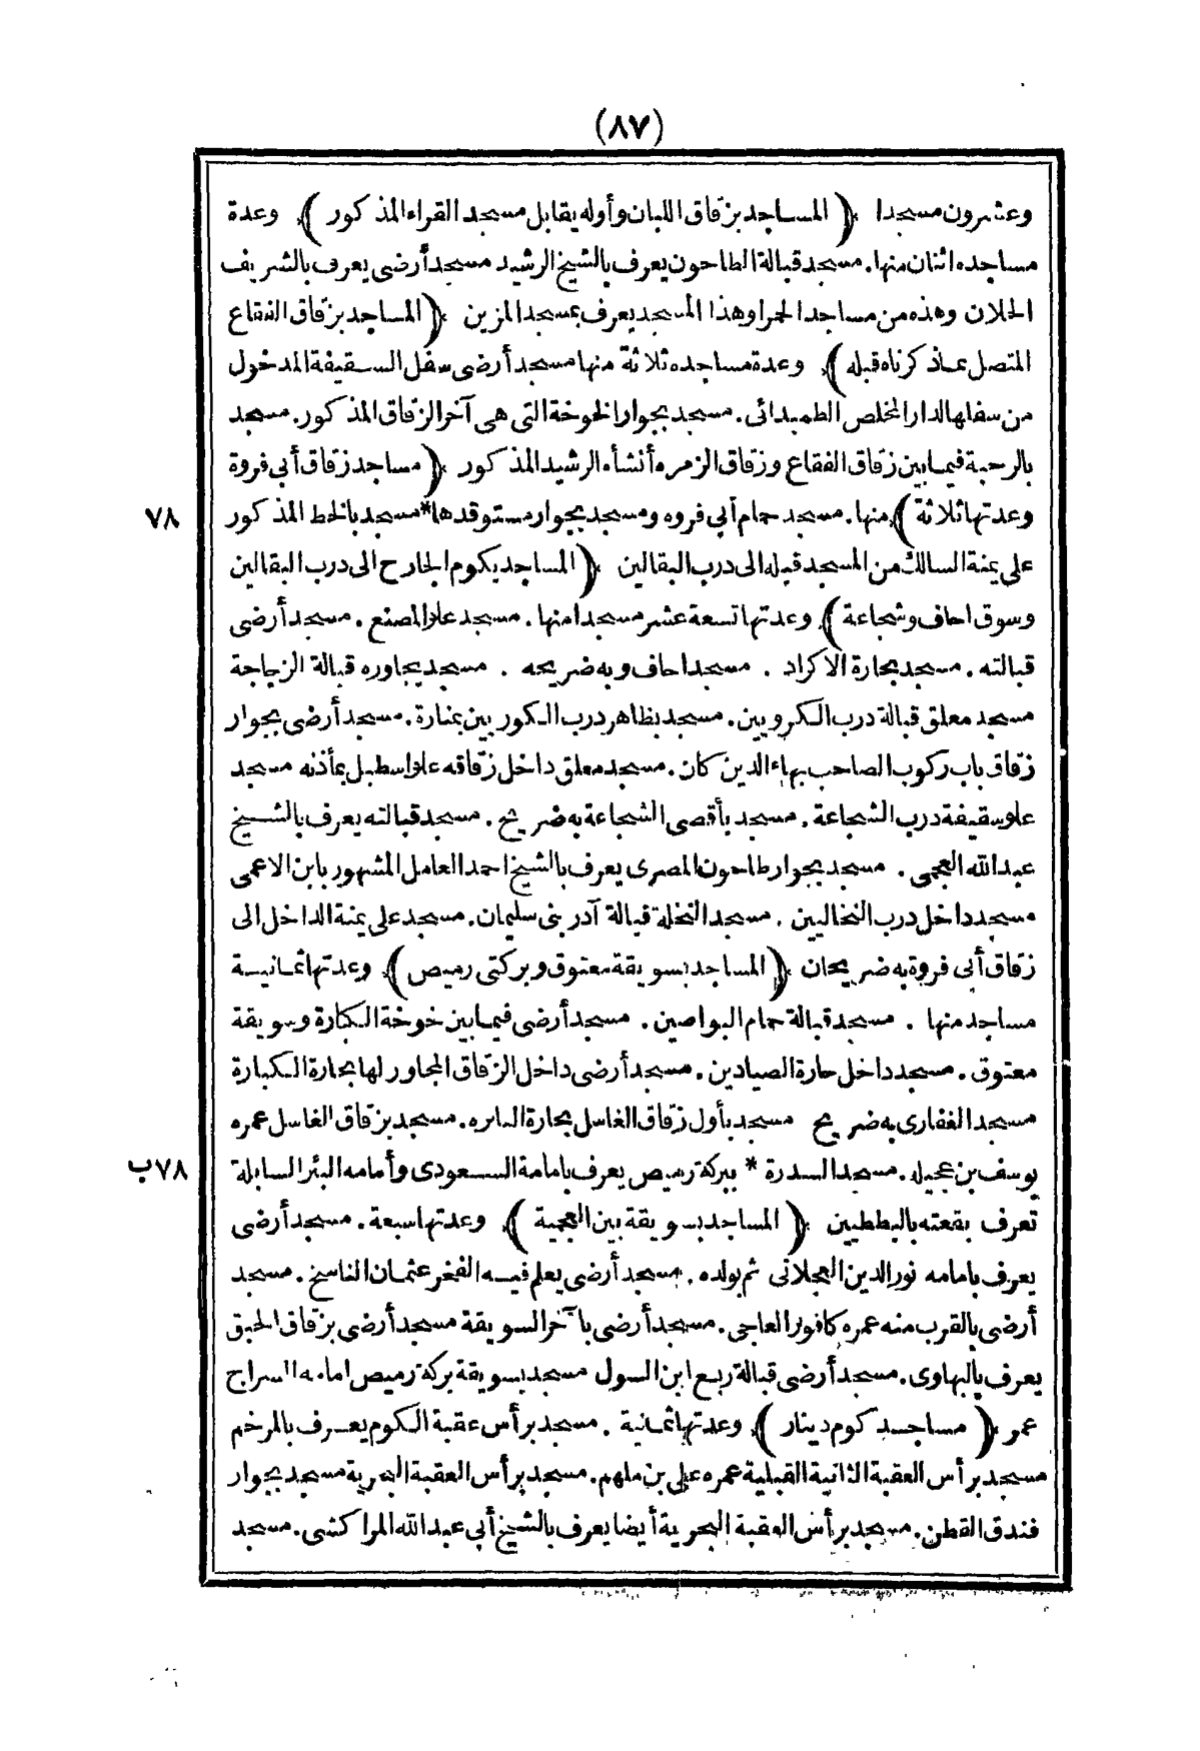 (٨٧)
وعشرون مسجدا ﴿ المساجد بزقاق اللبان وأوله يقابل مسجد القراء المذكور ﴾ وعدة
مساجده اثنان منها. مسجد قبالة الطاحون يعرف بالشيخ الرشيد مسجد أرضى يعرف بالشريف
الحلان وهذه من مساجد الحمرا وهذا المسجد يعرف بمسجد المزين ﴿ المساجد بزقاق الفقاع
المتصل بماذكرناه قبله ﴾ وعدة مساجده ثلاثة منها مسجد أرضى سفل السقيفة المدخول
من سفلها لدار المخلص الطميدائى. مسجد بجوار الخوخة التى هى آخر الزقاق المذكور. مسجد
بالرحبة فيما بين زقاق الفقاع وزقاق الزمره أنشأه الرشيد المذكور ﴿ مساجد زقاق أبى فروة
وعدتها ثلاثة ﴾ منها. مسجد حمام أبى فروه ومسجد بجوار مستوقدها* مسجد بالخط المذكور ٧٨
على يمنة السالك من المسجد قبله الى درب البقالين ﴿ المساجد بكوم الجارح الى درب البقالين
وسوق احاف وشجاعة ﴾ وعدتها تسعة عشر مسجدا منها. مسجد علو المصنع. مسجد أرضى
قبالته. مسجد بحارة الاكراد. مسجد احاف وبه ضريحه. مسجد يجاوره قبالة الزجاجة
مسجد معلق قبالة درب الكرويين. مسجد بظاهر درب الكوريين بمنارة. مسجد أرضى بجوار
زقاق باب ركوب الصاحب بهاء الدين كان. مسجد معلق داخل زقاقه علو اسطبل بمأذنه مسجد
علو سقيفة درب الشجاعة. مسجد بأقصى الشجاعة به ضريح. مسجد قبالته يعرف بالشيخ
عبد الله العجمى. مسجد بجوار طاحون المصرى يعرف بالشيخ احمد العامل المشهور بابن الاعمى
مسجد داخل درب النخاليين. مسجد النخلة قبالة آدر بنى سليمان. مسجد على يمنة الداخل الى
زقاق أبى فروة به ضريحان ﴿ المساجد بسويقة معتوق وبركتى رميص ﴾ وعدتها ثمانية
مساجد منها. مسجد قبالة حمام البواصين. مسجد أرضى فيما بين خوخة الكبارة وسويقة
معتوق. مسجد داخل حارة الصيادين. مسجد أرضى داخل الزقاق المجاور لها بحارة الكبارة
مسجد الغفارى به ضريح مسجد بأول زقاق الغاسل بحارة البابره. مسجد بزقاق الغاسل عمره
يوسف بن عجيله. مسجد السدرة * ببركة رميص يعرف بامامة السعودى وأمامه البئر السابلة ٧٨ب
تعرف بقعته بالبططيين ﴿ المساجد بسويقة بين العجمية ﴾ وعدتها سبعة. مسجد أرضى
يعرف بامامه نور الدين العجلانى ثم بولده. مسجد أرضى يعلم فيه الفخر عثمان الناسخ. مسجد
أرضى بالقرب منه عمره كافور العاجى. مسجد أرضى بآخر السويقة مسجد أرضى بزقاق الحبق
يعرف بالبهاوى. مسجد أرضى قبالة ربع ابن السول مسجد بسويقة بركة رميص امامه السراج
عمر ﴿ مساجد كوم دينار ﴾ وعدتها ثمانية. مسجد برأس عقبة الكوم يعرف بالمرخم
مسجد برأس العقبة الثانية القبلية عمره على بن ملهم. مسجد برأس العقبة البحرية مسجد بجوار
فندق القطن. مسجد برأس العقبة البحرية أيضا يعرف بالشيخ أبى عبد الله المراكشى. مسجد